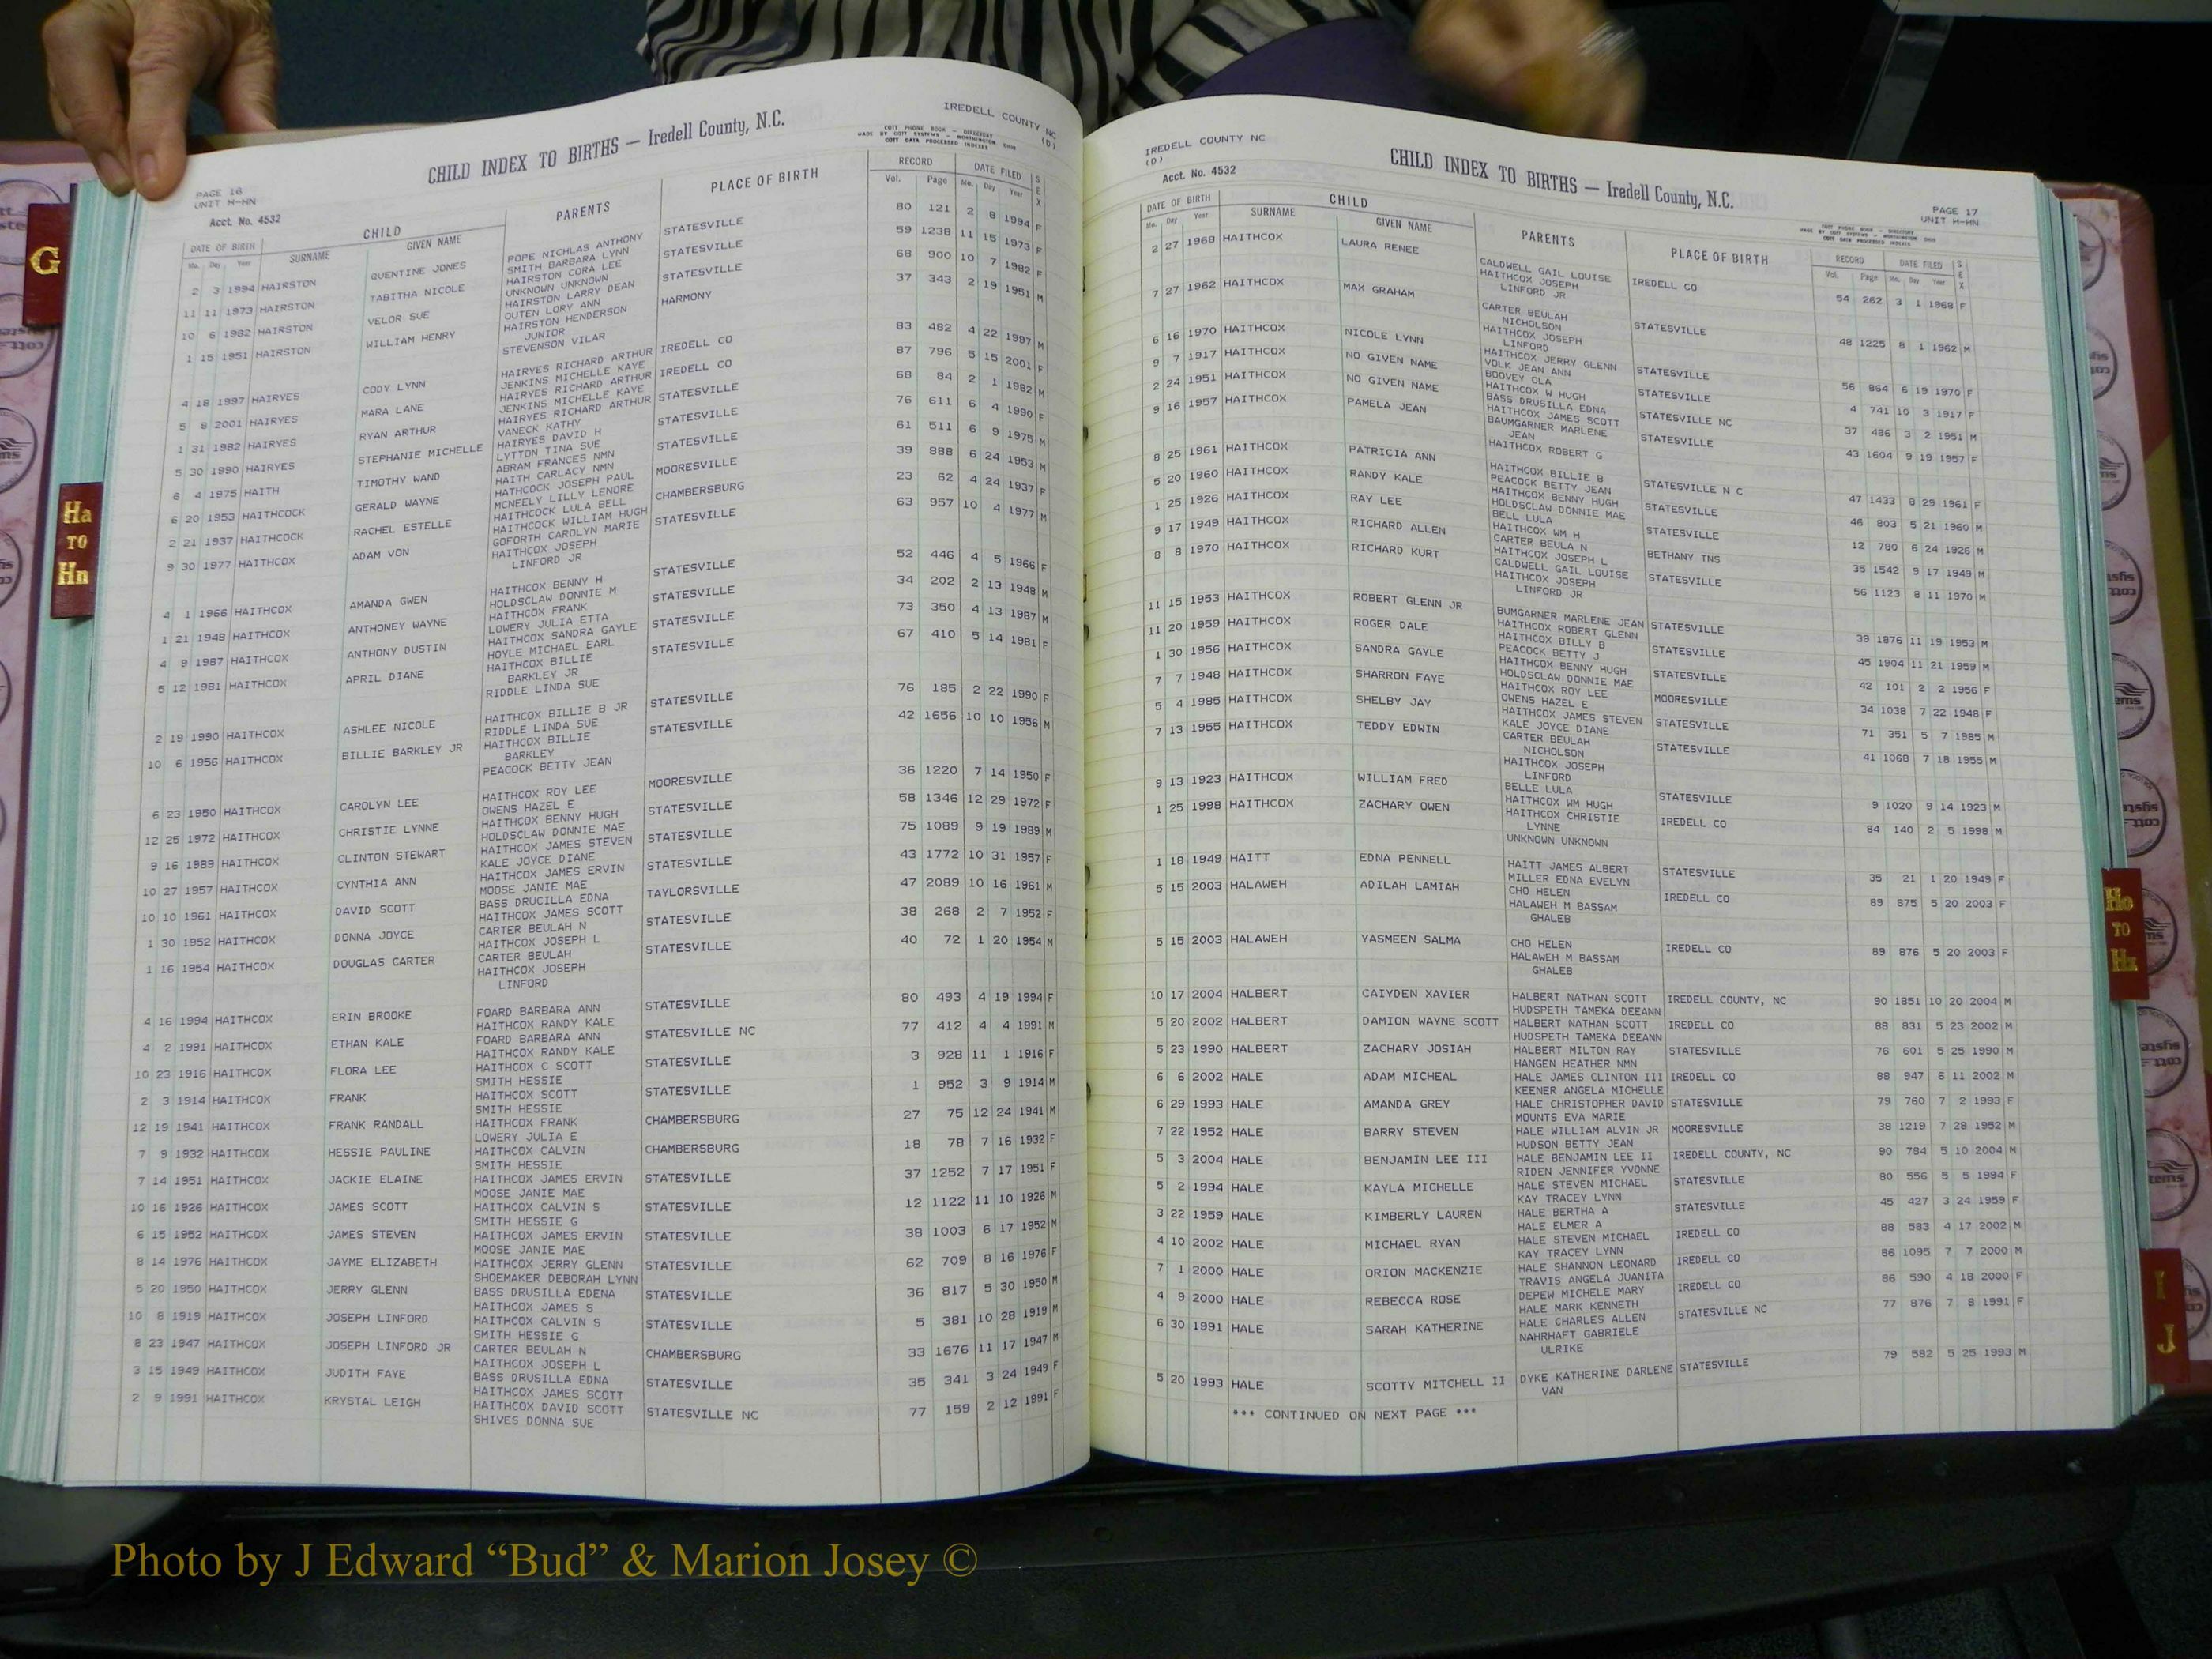 IREDELL COUNTY NC
(D)
CHILD INDEX TO BIRTHS — Iredell County, N.C.
COTT PHONE BOOK — DIRECTORY
MADE BY COTT SYSTEMS — WORTHINGTON, OHIO
COTT DATA PROCESSED INDEXES
PAGE 16
UNIT H-HN
Acct. No. 4532
DATE OF BIRTH CHILD PARENTS PLACE OF BIRTH RECORD DATE FILED SEX
Mo. Day Year SURNAME GIVEN NAME Vol. Page Mo. Day Year
2 3 1994 HAIRSTON QUENTINE JONES POPE NICHLAS ANTHONY STATESVILLE 80 121 2 8 1994 F
SMITH BARBARA LYNN
11 11 1973 HAIRSTON TABITHA NICOLE HAIRSTON CORA LEE STATESVILLE 59 1238 11 15 1973 F
UNKNOWN UNKNOWN
10 6 1982 HAIRSTON VELOR SUE HAIRSTON LARRY DEAN STATESVILLE 68 900 10 7 1982 F
OUTEN LORY ANN
1 15 1951 HAIRSTON WILLIAM HENRY HAIRSTON HENDERSON HARMONY 37 343 2 19 1951 M
JUNIOR
STEVENSON VILAR
4 18 1997 HAIRYES CODY LYNN HAIRYES RICHARD ARTHUR IREDELL CO 83 482 4 22 1997 M
JENKINS MICHELLE KAYE
5 8 2001 HAIRYES MARA LANE HAIRYES RICHARD ARTHUR IREDELL CO 87 796 5 15 2001 F
JENKINS MICHELLE KAYE
1 31 1982 HAIRYES RYAN ARTHUR HAIRYES RICHARD ARTHUR STATESVILLE 68 84 2 1 1982 M
VANECK KATHY
5 30 1990 HAIRYES STEPHANIE MICHELLE HAIRYES DAVID H STATESVILLE 76 611 6 4 1990 F
LYTTON TINA SUE
6 4 1975 HAITH TIMOTHY WAND ABRAM FRANCES NMN STATESVILLE 61 511 6 9 1975 M
HAITH CARLACY NMN
6 20 1953 HAITHCOCK GERALD WAYNE HATHCOCK JOSEPH PAUL MOORESVILLE 39 888 6 24 1953 M
MCNEELY LILLY LENORE
2 21 1937 HAITHCOCK RACHEL ESTELLE HAITHCOCK LULA BELL CHAMBERSBURG 23 62 4 24 1937 F
HAITHCOCK WILLIAM HUGH
9 30 1977 HAITHCOX ADAM VON GOFORTH CAROLYN MARIE STATESVILLE 63 957 10 4 1977 M
HAITHCOX JOSEPH
LINFORD JR
4 1 1966 HAITHCOX AMANDA GWEN HAITHCOX BENNY H STATESVILLE 52 446 4 5 1966 F
HOLDSCLAW DONNIE M
1 21 1948 HAITHCOX ANTHONEY WAYNE HAITHCOX FRANK STATESVILLE 34 202 2 13 1948 M
LOWERY JULIA ETTA
4 9 1987 HAITHCOX ANTHONY DUSTIN HAITHCOX SANDRA GAYLE STATESVILLE 73 350 4 13 1987 M
HOYLE MICHAEL EARL
5 12 1981 HAITHCOX APRIL DIANE HAITHCOX BILLIE STATESVILLE 67 410 5 14 1981 F
BARKLEY JR
RIDDLE LINDA SUE
2 19 1990 HAITHCOX ASHLEE NICOLE HAITHCOX BILLIE B JR STATESVILLE 76 185 2 22 1990 F
RIDDLE LINDA SUE
10 6 1956 HAITHCOX BILLIE BARKLEY JR HAITHCOX BILLIE STATESVILLE 42 1656 10 10 1956 M
BARKLEY
PEACOCK BETTY JEAN
6 23 1950 HAITHCOX CAROLYN LEE HAITHCOX ROY LEE MOORESVILLE 36 1220 7 14 1950 F
OWENS HAZEL E
12 25 1972 HAITHCOX CHRISTIE LYNNE HAITHCOX BENNY HUGH STATESVILLE 58 1346 12 29 1972 F
HOLDSCLAW DONNIE MAE
9 16 1989 HAITHCOX CLINTON STEWART HAITHCOX JAMES STEVEN STATESVILLE 75 1089 9 19 1989 M
KALE JOYCE DIANE
10 27 1957 HAITHCOX CYNTHIA ANN HAITHCOX JAMES ERVIN STATESVILLE 43 1772 10 31 1957 F
MOOSE JANIE MAE
10 10 1961 HAITHCOX DAVID SCOTT BASS DRUCILLA EDNA TAYLORSVILLE 47 2089 10 16 1961 M
HAITHCOX JAMES SCOTT
1 30 1952 HAITHCOX DONNA JOYCE CARTER BEULAH N STATESVILLE 38 268 2 7 1952 F
HAITHCOX JOSEPH L
1 16 1954 HAITHCOX DOUGLAS CARTER CARTER BEULAH STATESVILLE 40 72 1 20 1954 M
HAITHCOX JOSEPH
LINFORD
4 16 1994 HAITHCOX ERIN BROOKE FOARD BARBARA ANN STATESVILLE 80 493 4 19 1994 F
HAITHCOX RANDY KALE
4 2 1991 HAITHCOX ETHAN KALE FOARD BARBARA ANN STATESVILLE NC 77 412 4 4 1991 M
HAITHCOX RANDY KALE
10 23 1916 HAITHCOX FLORA LEE HAITHCOX C SCOTT STATESVILLE 3 928 11 1 1916 F
SMITH HESSIE
2 3 1914 HAITHCOX FRANK HAITHCOX SCOTT STATESVILLE 1 952 3 9 1914 M
SMITH HESSIE
12 19 1941 HAITHCOX FRANK RANDALL HAITHCOX FRANK CHAMBERSBURG 27 75 12 24 1941 M
LOWERY JULIA E
7 9 1932 HAITHCOX HESSIE PAULINE HAITHCOX CALVIN CHAMBERSBURG 18 78 7 16 1932 F
SMITH HESSIE
7 14 1951 HAITHCOX JACKIE ELAINE HAITHCOX JAMES ERVIN STATESVILLE 37 1252 7 17 1951 F
MOOSE JANIE MAE
10 16 1926 HAITHCOX JAMES SCOTT HAITHCOX CALVIN S STATESVILLE 12 1122 11 10 1926 M
SMITH HESSIE G
6 15 1952 HAITHCOX JAMES STEVEN HAITHCOX JAMES ERVIN STATESVILLE 38 1003 6 17 1952 M
MOOSE JANIE MAE
8 14 1976 HAITHCOX JAYME ELIZABETH HAITHCOX JERRY GLENN STATESVILLE 62 709 8 16 1976 F
SHOEMAKER DEBORAH LYNN
5 20 1950 HAITHCOX JERRY GLENN BASS DRUSILLA EDENA STATESVILLE 36 817 5 30 1950 M
HAITHCOX JAMES S
10 8 1919 HAITHCOX JOSEPH LINFORD HAITHCOX CALVIN S STATESVILLE 5 381 10 28 1919 M
SMITH HESSIE G
8 23 1947 HAITHCOX JOSEPH LINFORD JR CARTER BEULAH N CHAMBERSBURG 33 1676 11 17 1947 M
HAITHCOX JOSEPH L
3 15 1949 HAITHCOX JUDITH FAYE BASS DRUSILLA EDNA STATESVILLE 35 341 3 24 1949 F
HAITHCOX JAMES SCOTT
2 9 1991 HAITHCOX KRYSTAL LEIGH HAITHCOX DAVID SCOTT STATESVILLE NC 77 159 2 12 1991 F
SHIVES DONNA SUE
IREDELL COUNTY NC
(D)
Acct. No. 4532
CHILD INDEX TO BIRTHS — Iredell County, N.C.
PAGE 17
UNIT H-HN
COTT PHONE BOOK — DIRECTORY
MADE BY COTT SYSTEMS — WORTHINGTON, OHIO
COTT DATA PROCESSED INDEXES
DATE OF BIRTH CHILD PARENTS PLACE OF BIRTH RECORD DATE FILED SEX
Mo. Day Year SURNAME GIVEN NAME Vol. Page Mo. Day Year
2 27 1968 HAITHCOX LAURA RENEE CALDWELL GAIL LOUISE IREDELL CO 54 262 3 1 1968 F
HAITHCOX JOSEPH
LINFORD JR
7 27 1962 HAITHCOX MAX GRAHAM CARTER BEULAH STATESVILLE 48 1225 8 1 1962 M
NICHOLSON
HAITHCOX JOSEPH
LINFORD
6 16 1970 HAITHCOX NICOLE LYNN HAITHCOX JERRY GLENN STATESVILLE 56 864 6 19 1970 F
VOLK JEAN ANN
9 7 1917 HAITHCOX NO GIVEN NAME BOOVEY OLA STATESVILLE 4 741 10 3 1917 F
HAITHCOX W HUGH
2 24 1951 HAITHCOX NO GIVEN NAME BASS DRUSILLA EDNA STATESVILLE NC 37 486 3 2 1951 M
HAITHCOX JAMES SCOTT
9 16 1957 HAITHCOX PAMELA JEAN BAUMGARNER MARLENE STATESVILLE 43 1604 9 19 1957 F
JEAN
HAITHCOX ROBERT G
8 25 1961 HAITHCOX PATRICIA ANN HAITHCOX BILLIE B STATESVILLE N C 47 1433 8 29 1961 F
PEACOCK BETTY JEAN
5 20 1960 HAITHCOX RANDY KALE HAITHCOX BENNY HUGH STATESVILLE 46 803 5 21 1960 M
HOLDSCLAW DONNIE MAE
1 25 1926 HAITHCOX RAY LEE BELL LULA STATESVILLE 12 780 6 24 1926 M
HAITHCOX WM H
9 17 1949 HAITHCOX RICHARD ALLEN CARTER BEULA N BETHANY TNS 35 1542 9 17 1949 M
HAITHCOX JOSEPH L
8 8 1970 HAITHCOX RICHARD KURT CALDWELL GAIL LOUISE STATESVILLE 56 1123 8 11 1970 M
HAITHCOX JOSEPH
LINFORD JR
11 15 1953 HAITHCOX ROBERT GLENN JR BUMGARNER MARLENE JEAN STATESVILLE 39 1876 11 19 1953 M
HAITHCOX ROBERT GLENN
11 20 1959 HAITHCOX ROGER DALE HAITHCOX BILLY B STATESVILLE 45 1904 11 21 1959 M
PEACOCK BETTY J
1 30 1956 HAITHCOX SANDRA GAYLE HAITHCOX BENNY HUGH STATESVILLE 42 101 2 2 1956 F
HOLDSCLAW DONNIE MAE
7 7 1948 HAITHCOX SHARRON FAYE HAITHCOX ROY LEE MOORESVILLE 34 1038 7 22 1948 F
OWENS HAZEL E
5 4 1985 HAITHCOX SHELBY JAY HAITHCOX JAMES STEVEN STATESVILLE 71 351 5 7 1985 M
KALE JOYCE DIANE
7 13 1955 HAITHCOX TEDDY EDWIN CARTER BEULAH STATESVILLE 41 1068 7 18 1955 M
NICHOLSON
HAITHCOX JOSEPH
LINFORD
9 13 1923 HAITHCOX WILLIAM FRED BELLE LULA STATESVILLE 9 1020 9 14 1923 M
HAITHCOX WM HUGH
1 25 1998 HAITHCOX ZACHARY OWEN HAITHCOX CHRISTIE IREDELL CO 84 140 2 5 1998 M
LYNNE
UNKNOWN UNKNOWN
1 18 1949 HAITT EDNA PENNELL HAITT JAMES ALBERT STATESVILLE 35 21 1 20 1949 F
MILLER EDNA EVELYN
5 15 2003 HALAWEH ADILAH LAMIAH CHO HELEN IREDELL CO 89 875 5 20 2003 F
HALAWEH M BASSAM
GHALEB
5 15 2003 HALAWEH YASMEEN SALMA CHO HELEN IREDELL CO 89 876 5 20 2003 F
HALAWEH M BASSAM
GHALEB
10 17 2004 HALBERT CAIYDEN XAVIER HALBERT NATHAN SCOTT IREDELL COUNTY, NC 90 1851 10 20 2004 M
HUDSPETH TAMEKA DEEANN
5 20 2002 HALBERT DAMION WAYNE SCOTT HALBERT NATHAN SCOTT IREDELL CO 88 831 5 23 2002 M
HUDSPETH TAMEKA DEEANN
5 23 1990 HALBERT ZACHARY JOSIAH HALBERT MILTON RAY STATESVILLE 76 601 5 25 1990 M
HANGEN HEATHER NMN
6 6 2002 HALE ADAM MICHEAL HALE JAMES CLINTON III IREDELL CO 88 947 6 11 2002 M
KEENER ANGELA MICHELLE
6 29 1993 HALE AMANDA GREY HALE CHRISTOPHER DAVID STATESVILLE 79 760 7 2 1993 F
MOUNTS EVA MARIE
7 22 1952 HALE BARRY STEVEN HALE WILLIAM ALVIN JR MOORESVILLE 38 1219 7 28 1952 M
HUDSON BETTY JEAN
5 3 2004 HALE BENJAMIN LEE III HALE BENJAMIN LEE II IREDELL COUNTY, NC 90 784 5 10 2004 M
RIDEN JENNIFER YVONNE
5 2 1994 HALE KAYLA MICHELLE HALE STEVEN MICHAEL STATESVILLE 80 556 5 5 1994 F
KAY TRACEY LYNN
3 22 1959 HALE KIMBERLY LAUREN HALE BERTHA A STATESVILLE 45 427 3 24 1959 F
HALE ELMER A
4 10 2002 HALE MICHAEL RYAN HALE STEVEN MICHAEL IREDELL CO 88 583 4 17 2002 M
KAY TRACEY LYNN
7 1 2000 HALE ORION MACKENZIE HALE SHANNON LEONARD IREDELL CO 86 1095 7 7 2000 M
TRAVIS ANGELA JUANITA
4 9 2000 HALE REBECCA ROSE DEPEW MICHELE MARY IREDELL CO 86 590 4 18 2000 F
HALE MARK KENNETH
6 30 1991 HALE SARAH KATHERINE HALE CHARLES ALLEN STATESVILLE NC 77 876 7 8 1991 F
NAHRHAFT GABRIELE
ULRIKE
5 20 1993 HALE SCOTTY MITCHELL II DYKE KATHERINE DARLENE STATESVILLE 79 582 5 25 1993 M
VAN
*** CONTINUED ON NEXT PAGE ***
G
Ha
TO
Hn
Ho
TO
Hz
I
J
Photo by J Edward “Bud” & Marion Josey ©